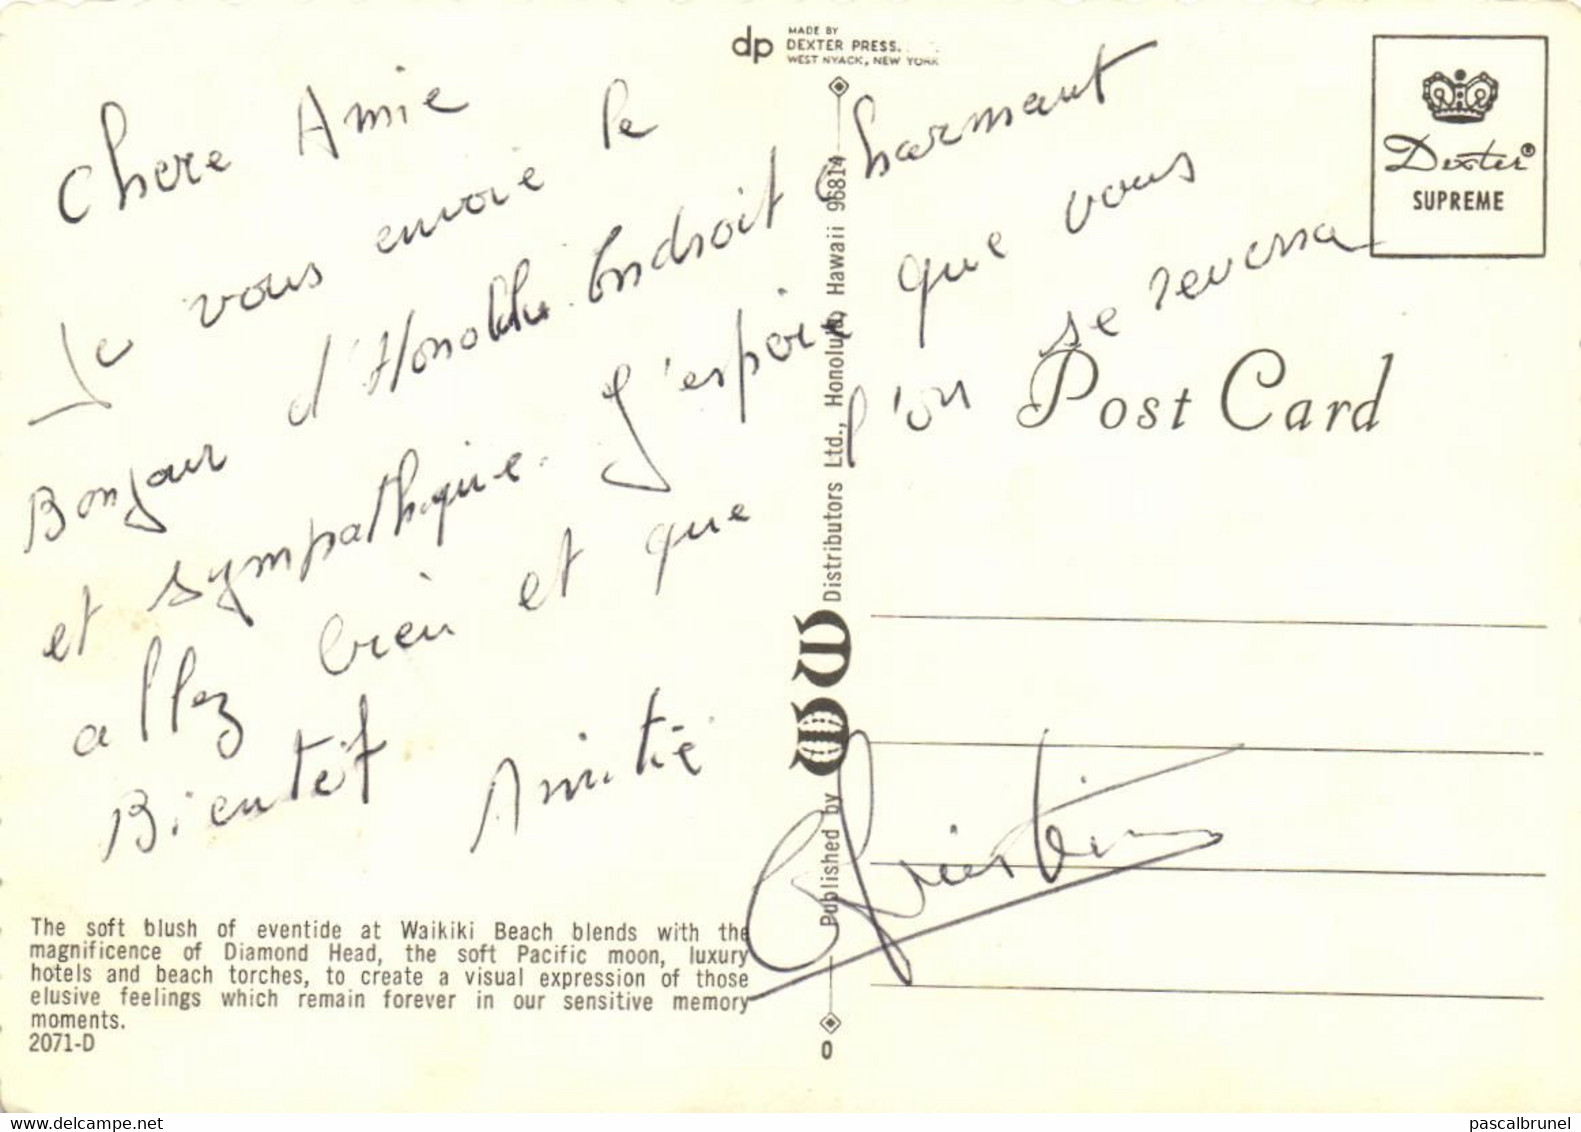 dp
MADE BY
DEXTER PRESS.
WEST NYACK, NEW YORK
Dexter®
SUPREME
Post Card
Chere Amie
Je vous envoie le
Bonjour d'Honollu. Endroit charmant
et sympathique. J'espoire que vous
allez bien et que l'on se reversa
Bientôt Amitié
Christian
Published by WW Distributors Ltd., Honolulu, Hawaii 96814
The soft blush of eventide at Waikiki Beach blends with the
magnificence of Diamond Head, the soft Pacific moon, luxury
hotels and beach torches, to create a visual expression of those
elusive feelings which remain forever in our sensitive memory
moments.
2071-D
0
delcampe.net
pascalbrunel